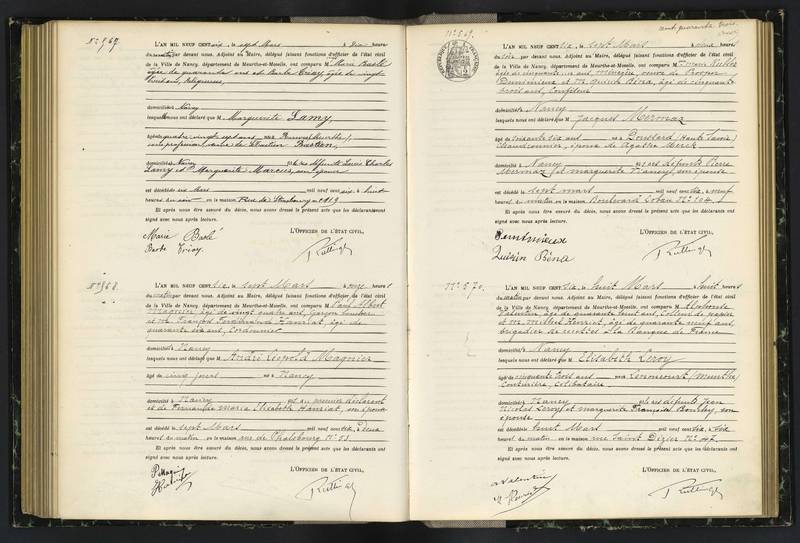 N° 567.
L'AN MIL NEUF CENT six, le sept Mars à dix heures
du matin par devant nous. Adjoint au Maire, délégué faisant fonctions d'officier de l'état civil
de la Ville de Nancy, département de Meurthe-et-Moselle, ont comparu Marie Baslé
âgée de quarante ans et Barbe Tricoy âgée de vingt
huit ans, religieuses,
domiciliées à Nancy
lesquelles nous ont déclaré que M Marguerite Lamy,
âgée de quatre vingt sept ans née à (Meurthe)
sans profession, veuve de Bastien,
domiciliée à Nancy fille des défunts Louis Charles
Lamy et Marguerite Marcus, son épouse
est décédée le six Mars mil neuf cent six, à huit
heures du soir en la maison Rue de Strasbourg n° 119
Et après nous être assuré du décès, nous avons dressé le présent acte que les déclarants ont
signé avec nous après lecture.
L'OFFICIER DE L'ÉTAT CIVIL,
Marie Baslé
Barbe Tricoy
N° 568.
L'AN MIL NEUF CENT six, le sept Mars à onze heures
du matin par devant nous. Adjoint au Maire, délégué faisant fonctions d'officier de l'état civil
de la Ville de Nancy, département de Meurthe-et-Moselle, ont comparu M Paul Albert
Magnier, âgé de vingt quatre ans, garçon
et M. François Ferdinand Hanriat, âgé de
quarante six ans, cordonnier
domiciliés à Nancy
lesquels nous ont déclaré que M André Léopold Magnier
âgé de cinq jours né à Nancy
domicilié à Nancy fils du premier déclarant
et de Fernande Maria Elisabeth Hanriat, son épouse
est décédé le sept Mars mil neuf cent six, à deux
heures du matin en la maison rue de Phalsbourg N° 23.
Et après nous être assuré du décès, nous avons dressé le présent acte que les déclarants ont
signé avec nous après lecture.
L'OFFICIER DE L'ÉTAT CIVIL,
P Magnier
N° 569.
L'AN MIL NEUF CENT six, le sept Mars à onze heures
du par devant nous. Adjoint au Maire, délégué faisant fonctions d'officier de l'état civil
de la Ville de Nancy, département de Meurthe-et-Moselle, ont comparu M
âgée de cinquante un ans, ménagère, veuve de Prosper
et M. Quirin Béna, âgé de cinquante
trois ans, Compteur
domiciliés à Nancy
lesquels nous ont déclaré que M Jacques Mermaz
âgé de soixante six ans né à (Haute Savoie)
chaudronnier, époux de Agathe Merck
domicilié à Nancy fils des défunts Pierre
Mermaz et Marguerite Nancey, son épouse
est décédé le sept mars mil neuf cent six, à neuf
heures du matin, en la maison Boulevard Lobau N° 104
Et après nous être assuré du décès, nous avons dressé le présent acte que les déclarants ont
signé avec nous après lecture.
L'OFFICIER DE L'ÉTAT CIVIL,
Quirin Béna
N° 570.
L'AN MIL NEUF CENT six, le huit Mars à huit heures
du matin par devant nous. Adjoint au Maire, délégué faisant fonctions d'officier de l'état civil
de la Ville de Nancy, département de Meurthe-et-Moselle, ont comparu M Alphonse
Valentin, âgé de quarante huit ans, Colleur de papier
et M. Henriet, âgé de quarante neuf ans,
brigadier de recettes à la Banque de France
domiciliés à Nancy
lesquels nous ont déclaré que M Elisabeth Leroy
âgée de cinquante trois ans née à Lenoncourt (Meurthe)
Couturière, célibataire
domiciliée à Nancy fille des défunts Jean
Nicolas Leroy et Marguerite Françoise son
épouse
est décédée le huit Mars mil neuf cent six, à six
heures du matin en la maison rue Saint Dizier N° 47
Et après nous être assuré du décès, nous avons dressé le présent acte que les déclarants ont
signé avec nous après lecture.
L'OFFICIER DE L'ÉTAT CIVIL,
a Valentin